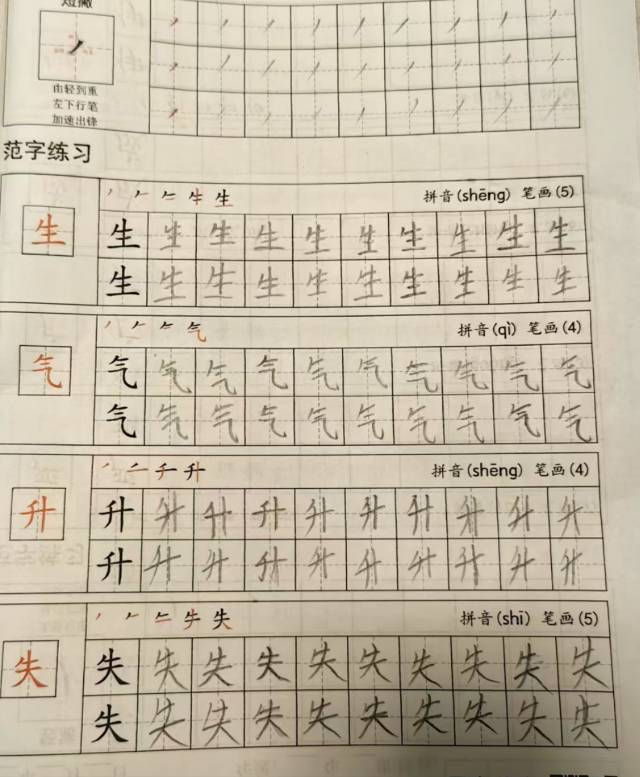 短撇
由轻到重
左下行笔
加速出锋
范字练习
拼音(shēng) 笔画(5)
生
生 生 生 生 生 生 生 生 生 生
生 生 生 生 生 生 生 生 生 生
气 拼音(qì) 笔画(4)
气
气 气 气 气 气 气 气 气 气 气
气 气 气 气 气 气 气 气 气 气
升 拼音(shēng) 笔画(4)
升
升 升 升 升 升 升 升 升 升 升
升 升 升 升 升 升 升 升 升 升
失 拼音(shī) 笔画(5)
失
失 失 失 失 失 失 失 失 失 失
失 失 失 失 失 失 失 失 失 失